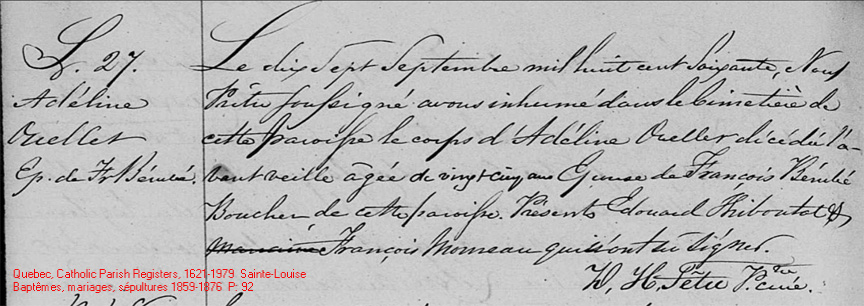 S. 27.
Adéline
Ouellet
Ep. de Fr Bérubé.
Le dix Sept Septembre mil huit cent Soixante, Nous
Prêtre Soussigné avons inhumé dans le Cimetière de
cette paroisse le corps d'Adéline Ouellet décédée l'a-
vant veille âgée de vingt cinq ans Epouse de François Bérubé
Boucher de cette paroisse. Présents Edouard Thiboutot &
François Morneau qui n'ont su signer.
D. H. Têtu Ptre curé.
Quebec, Catholic Parish Registers, 1621-1979 Sainte-Louise
Baptêmes, mariages, sépultures 1859-1876 P: 92